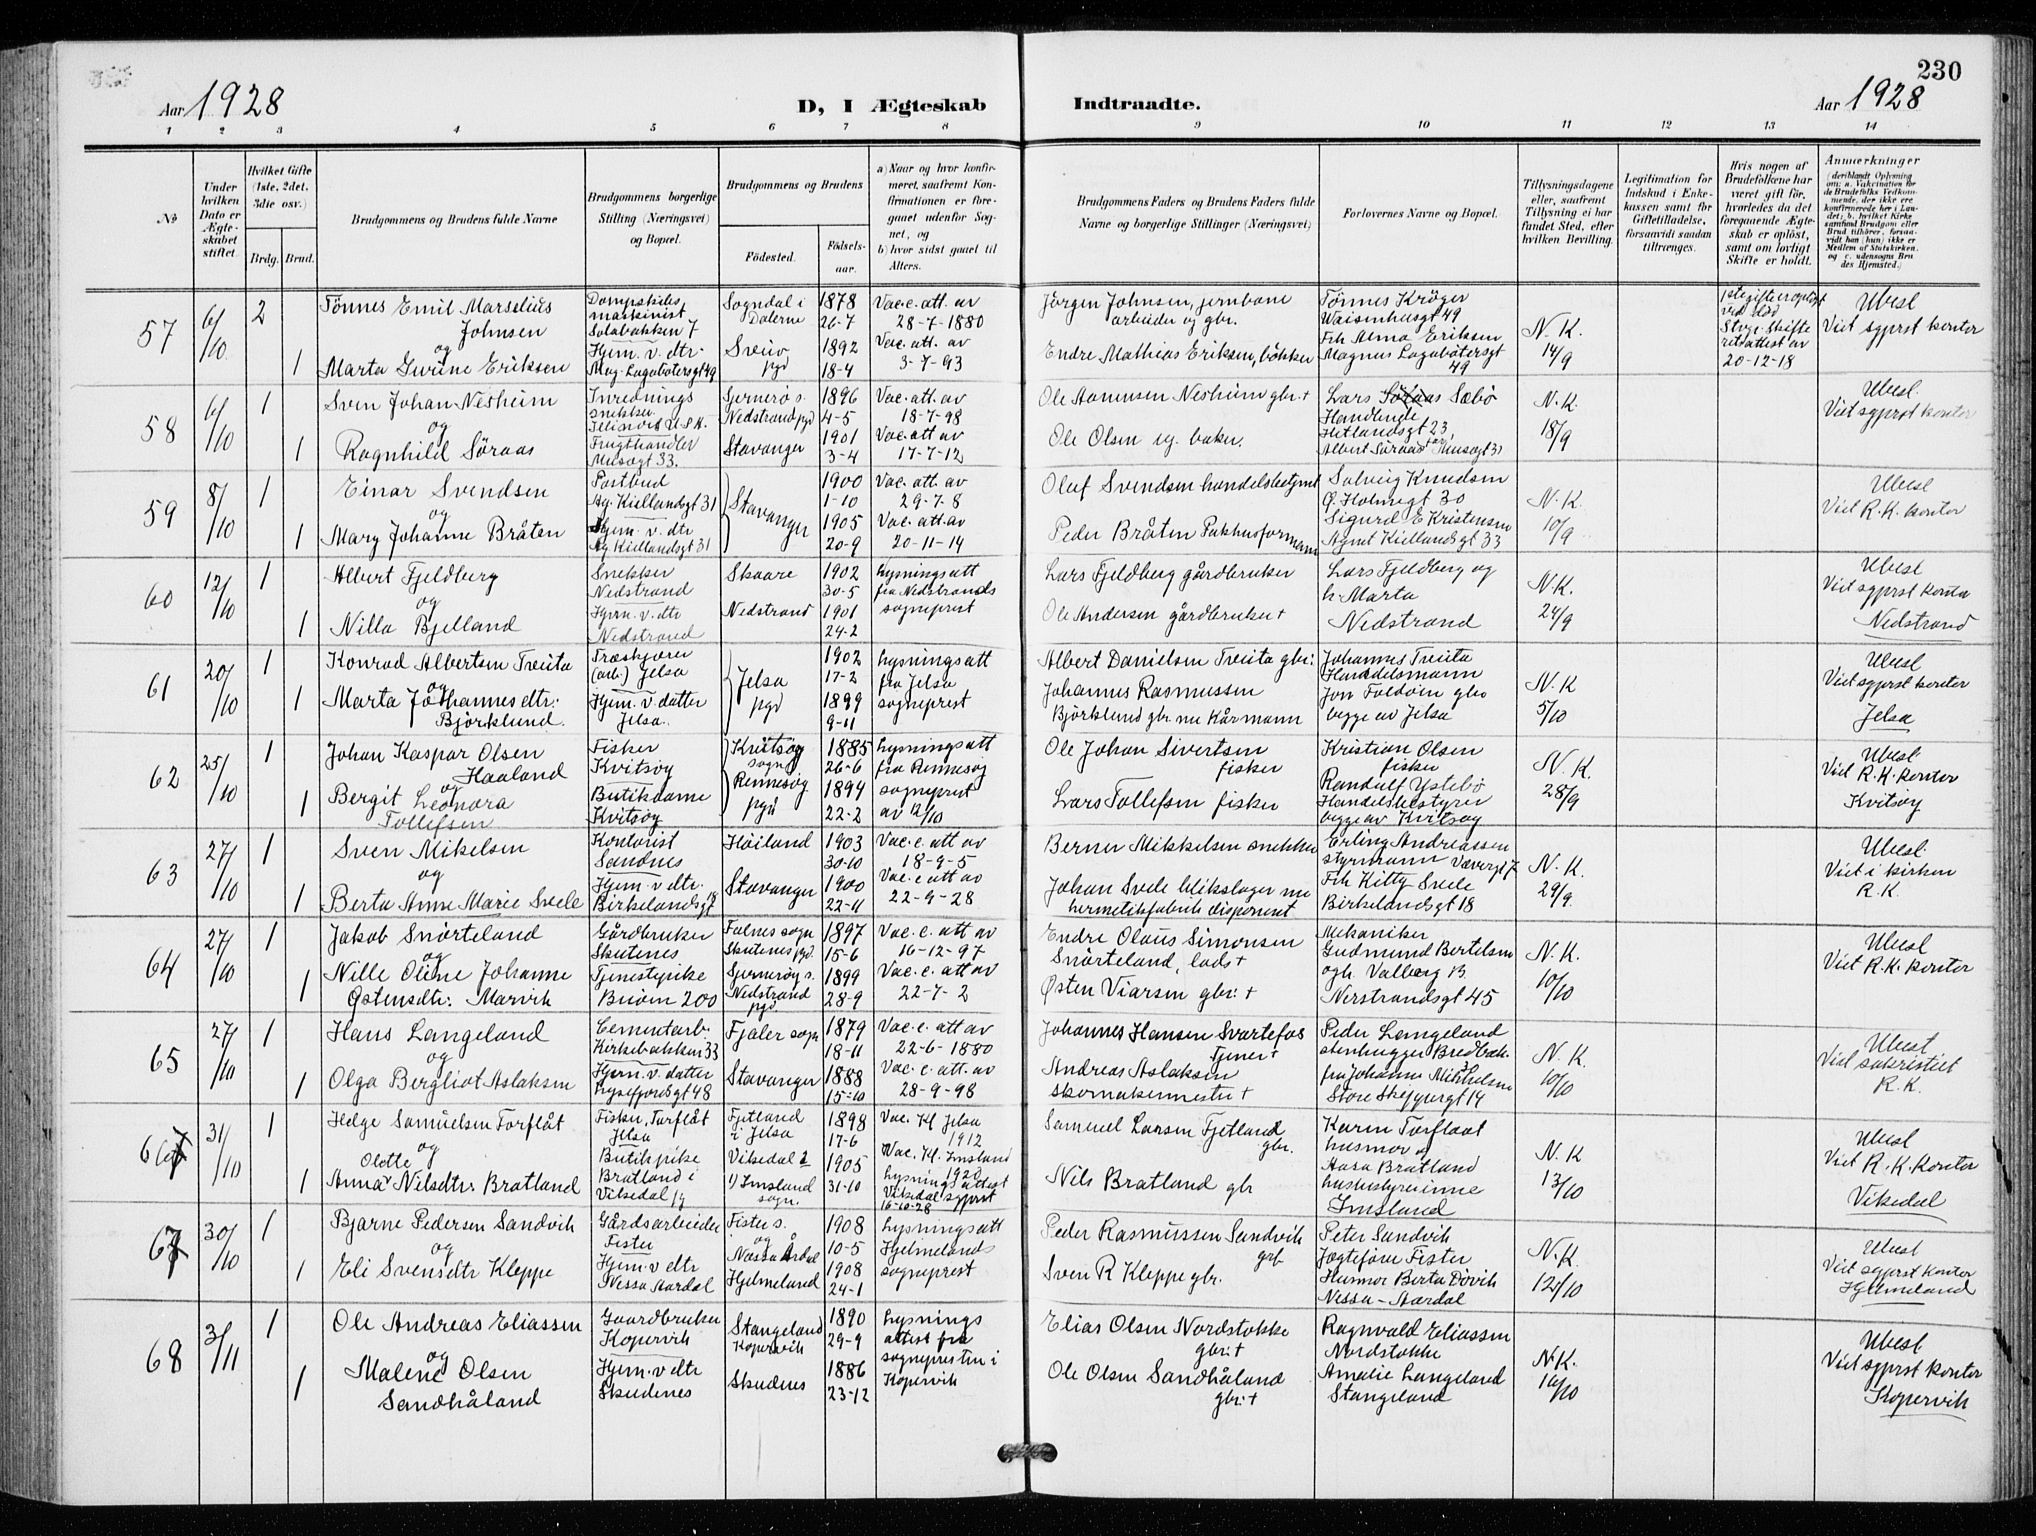 230
Aar 1928
D, I Ægteskab
Indtraadte.
Aar 1928
1 2 3 4 5 6 7 8 9 10 11 12 13 14
No
Under hvilken Dato er Ægteskabet stiftet.
Hvilket Gifte (1ste, 2det, 3die osv.)
Brdg. Brud.
Brudgommens og Brudens fulde Navne
Brudgommens borgerlige Stilling (Næringsvei) og Bopæl.
Brudgommens og Brudens
Fødested. Fødselsaar.
a) Naar og hvor konfirmeret, saafremt Konfirmationen er foregaaet udenfor Sognet, og
b) hvor sidst gaaet til Alters.
Brudgommens Faders og Brudens Faders fulde Navne og borgerlige Stillinger (Næringsvei)
Forlovernes Navne og Bopæl.
Tillysningsdagene eller, saafremt Tillysning ei har fundet Sted, efter hvilken Bevilling.
Legitimation for Indskud i Enkekassen samt for Giftetilladelse, forsaavidt saadan tiltrænges.
Hvis nogen af Brudefolkene har været gift før, hvorledes da det foregaaende Ægteskab er opløst, samt om lovligt Skifte er holdt.
Anmerkninger (deriblandt Oplysning om: a. Vakcination for de Brudefolks Vedkommende, der ikke ere konfirmerede her i Landet; b. hvilket Kirkesamfund Brudgom eller Brud tilhører, forsaavidt han (hun) ikke er Medlem af Statskirken, og c. udensogns Brudes Hjemsted.)
57
6/10
2
1
Tönnes Emil Marselius Johnsen
og
Marta Gurine Eriksen
Dampskibsmaskinist
Solabakken 7
Hjem. v. dtr.
Mag. Lagabötersgt 49
Sogndal i Dalerne
Sveio pgd
1878
26-7
1892
18-4
Vac. c. att. av
28-7-1880
Vac. att. av
3-7-93
Jörgen Johnsen, jernbanearbeider og gbr.
Endre Mathias Eriksen, bökker
Tönnes Kröger
Waisenhusgt 49
Frk Alma Eriksen
Magnus Lagabötersgt 49
N. K.
14/9
1ste gifte opløst ved död
Stvgr. skifterettsattest av
20-12-18
Ubesl
Viet sgprst kontor
58
6/10
1
1
Sven Johan Nesheim
og
Ragnhild Söraas
Inrednings snekker
U.S.A.
Frugthandler
Musegt 33.
Sjernerö s.
Nedstrand pgd
Stavanger
1896
4-5
1901
3-4
Vac. att. av
18-7-98
Vac. att av
17-7-12
Ole Aanensen Nesheim gbr. +
Ole Olsen sg. baker.
Lars Sæbö
Handlende
Hetlandsgt 23,
Albert Söraas Musegt 31
N. K.
18/9
Ubesl.
Viet sgprst kontor
59
8/10
1
1
Einar Svendsen
og
Mary Johanne Bråten
Postbud
Ag. Kiellandsgt 31
Hjem. v. dtr
Ag Kiellandsgt 31
Stavanger
1900
1-10
1905
20-9
Vac. att. av
29-7-8
Vac. att. av
20-11-14
Oluf Svendsen handelsbetjent
Peder Bråten Pakhusformann
Solveig Knudsen
Ø. Holmegt 30
Sigurd E Kristensen
Agnet Kiellandsgt 33
N. K.
10/9
Ubesl
Viet R. K. kontor
60
12/10
1
1
Albert Fjeldberg
og
Nilla Bjelland
Snekker
Nedstrand
Hjem. v. dtr
Nedstrand
Skaare
Nedstrand
1902
30-5
1901
24-2
Lysningsatt
fra Nedstrands
sogneprest
Lars Fjeldberg gårdbruker
Ole Andersen gårdbruker +
Lars Fjeldberg og
h. Marta
Nedstrand
N. K.
24/9
Ubesl
Viet sgprst kontor
Nedstrand
61
20/10
1
1
Konrad Albertsen Treita
og
Marta Johannesdtr.
Björklund.
Træskjærer
(arb.) Jelsa
Hjem. v. datter
Jelsa
Jelsa pgd
1902
17-2
1899
9-11
Lysningsatt
fra Jelsa
sogneprest
Albert Danielsen Treita gbr.
Johannes Rasmussen
Björklund gbr. nu Kårmann
Johannes Treita
Handelsmann
Jon Foldöen gbr
begge av Jelsa
N. K
5/10
Ubesl
Viet sgprst kontor
Jelsa
62
25/10
1
1
Johan Kaspar Olsen
Haaland
og
Bergit Leonora
Tollefsen
Fisker
Kvitsöy
Butikdame
Kvitsöy
Kvitsöy sogn
Rennesöy pgd
1885
26-6
1894
22-2
Lysningsatt
fra Rennesöy
sogneprest
av 12/10
Ole Johan Sivertsen
fisker
Lars Tollefsen fisker
Kristian Olsen
fisker
Randulf Ystebö
Handelsbestyrer
begge av Kvitsöy
N. K.
28/9
Ubesl
Viet R. K. kontor
Kvitsöy
63
27/10
1
1
Sven Mikelsen
og
Berta Anne Marie Svele
Kontorist
Sandnes
Hjem. v dtr.
Birkelandsgt 18
Höiland
Stavanger
1903
30-10
1900
22-11
Vac. c. att av
18-9-5
Vac. c att av
22-9-28
Berner Mikkelsen snekker
Johan Svele blikslager nu
hermetikfabrik disponent
Erling Andreassen
styrmann Vævergt 7
Frk Kitty Svele
Birkelandsgt 18
N. K.
29/9.
Ubesl.
Viet i kirken
R. K.
64
27/10
1
1
Jakob Snörteland
og
Nille Oline Johanne
Östensdtr. Marvik
Gårdbruker
Skutenes
Tjenestepike
Buöen 200
Falnes sogn
Skutenes pgd.
Sjernerøy s.
Nedstrand pgd
1897
15-6
1899
28-9
Vac. c. att av
16-12-97
Vac. c. att av
22-7-2
Endre Olaus Simonsen
Snörteland, lods +
Østen Viarsen gbr. +
Mekaniker
Gudmund Bertelsen
og h. Valborg B.
Nerstrandsgt 45
N. K.
10/10
Ubesl
Viet R. K. kontor
65
27/10
1
1
Hans Langeland
og
Olga Bergliot Aslaksen
Cementarb.
Kirkebakken 33
Hjem. v. datter
Lysefjordsgt 48
Fjaler sogn
Stavanger
1879
18-11
1888
15-10
Vac. c. att av
22-6-1880
Vac. c. att. av
28-9-98
Johannes Hansen Svartefos
Tjener +
Andreas Aslaksen
skomakermester +
Peder Langeland
stenhugger Bredbak.
fru Johanne Mikkelsen
Store Skippergt 14
N. K.
10/10
Ubesl
Viet sakristiet
R. K.
66
31/10
1
1
Helge Samuelsen Torflåt
og
Anna Olette Nilsdtr. Bratland
Fisker, Torflåt
Jelsa
Butikpike
Bratland i
Vikedal pg
Fjetland
i Jelsa
Vikedal 2
1) Imsland sogn.
1898
17-6
1905
31-10
Vac. Kf Jelsa
1912
Vac. Kf. Imsland
1920
Lysnings attest
Vikedal sgprst
16-10-28
Samuel Larsen Fjetland
gbr.
Nils Bratland gbr
Karin Torflaat
husmor og
Aasa Bratland
husbestyrerinne
Imsland
N. K
13/10
Ubesl
Viet R. K. kontor
Vikedal
67
30/10
1
1
Bjarne Pedersen Sandvik
og
Eli Svensdtr Kleppe
Gårdsarbeider
Fister
Hjem. v dtr
Nessa Aardal
Fister s.
og
Nessa Årdal
Hjelmeland
1908
10-5
1908
24-1
Lysningsatt
Hjelmelands
sogneprest
Peder Rasmussen Sandvik
gbr
Sven R Kleppe gbr.
Peter Sandvik
Jægtefører Fister
Husmor Berta Dövik
Nessa-Aardal
N. K.
12/10
Ubesl
Viet sgprst kontor
Hjelmeland
68
3/11
1
1
Ole Andreas Eliassen
og
Malene Olsen
Sandhåland
Gaardbruker
Kopervik
Hjem. v dtr
Skudenes
Stangeland
Kopervik
Skudenes
1890
29-9
1886
23-12
Lysnings
attest fra
sognepresten i
Kopervik
Elias Olsen Nordstokke
gbr. +
Ole Olsen Sandhåland
gbr. +
Ragnvald Eliassen
Nordstokke
Amalie Langeland
Stangeland
N. K.
16/10
Ubesl
Viet sgprst kontor
Kopervik